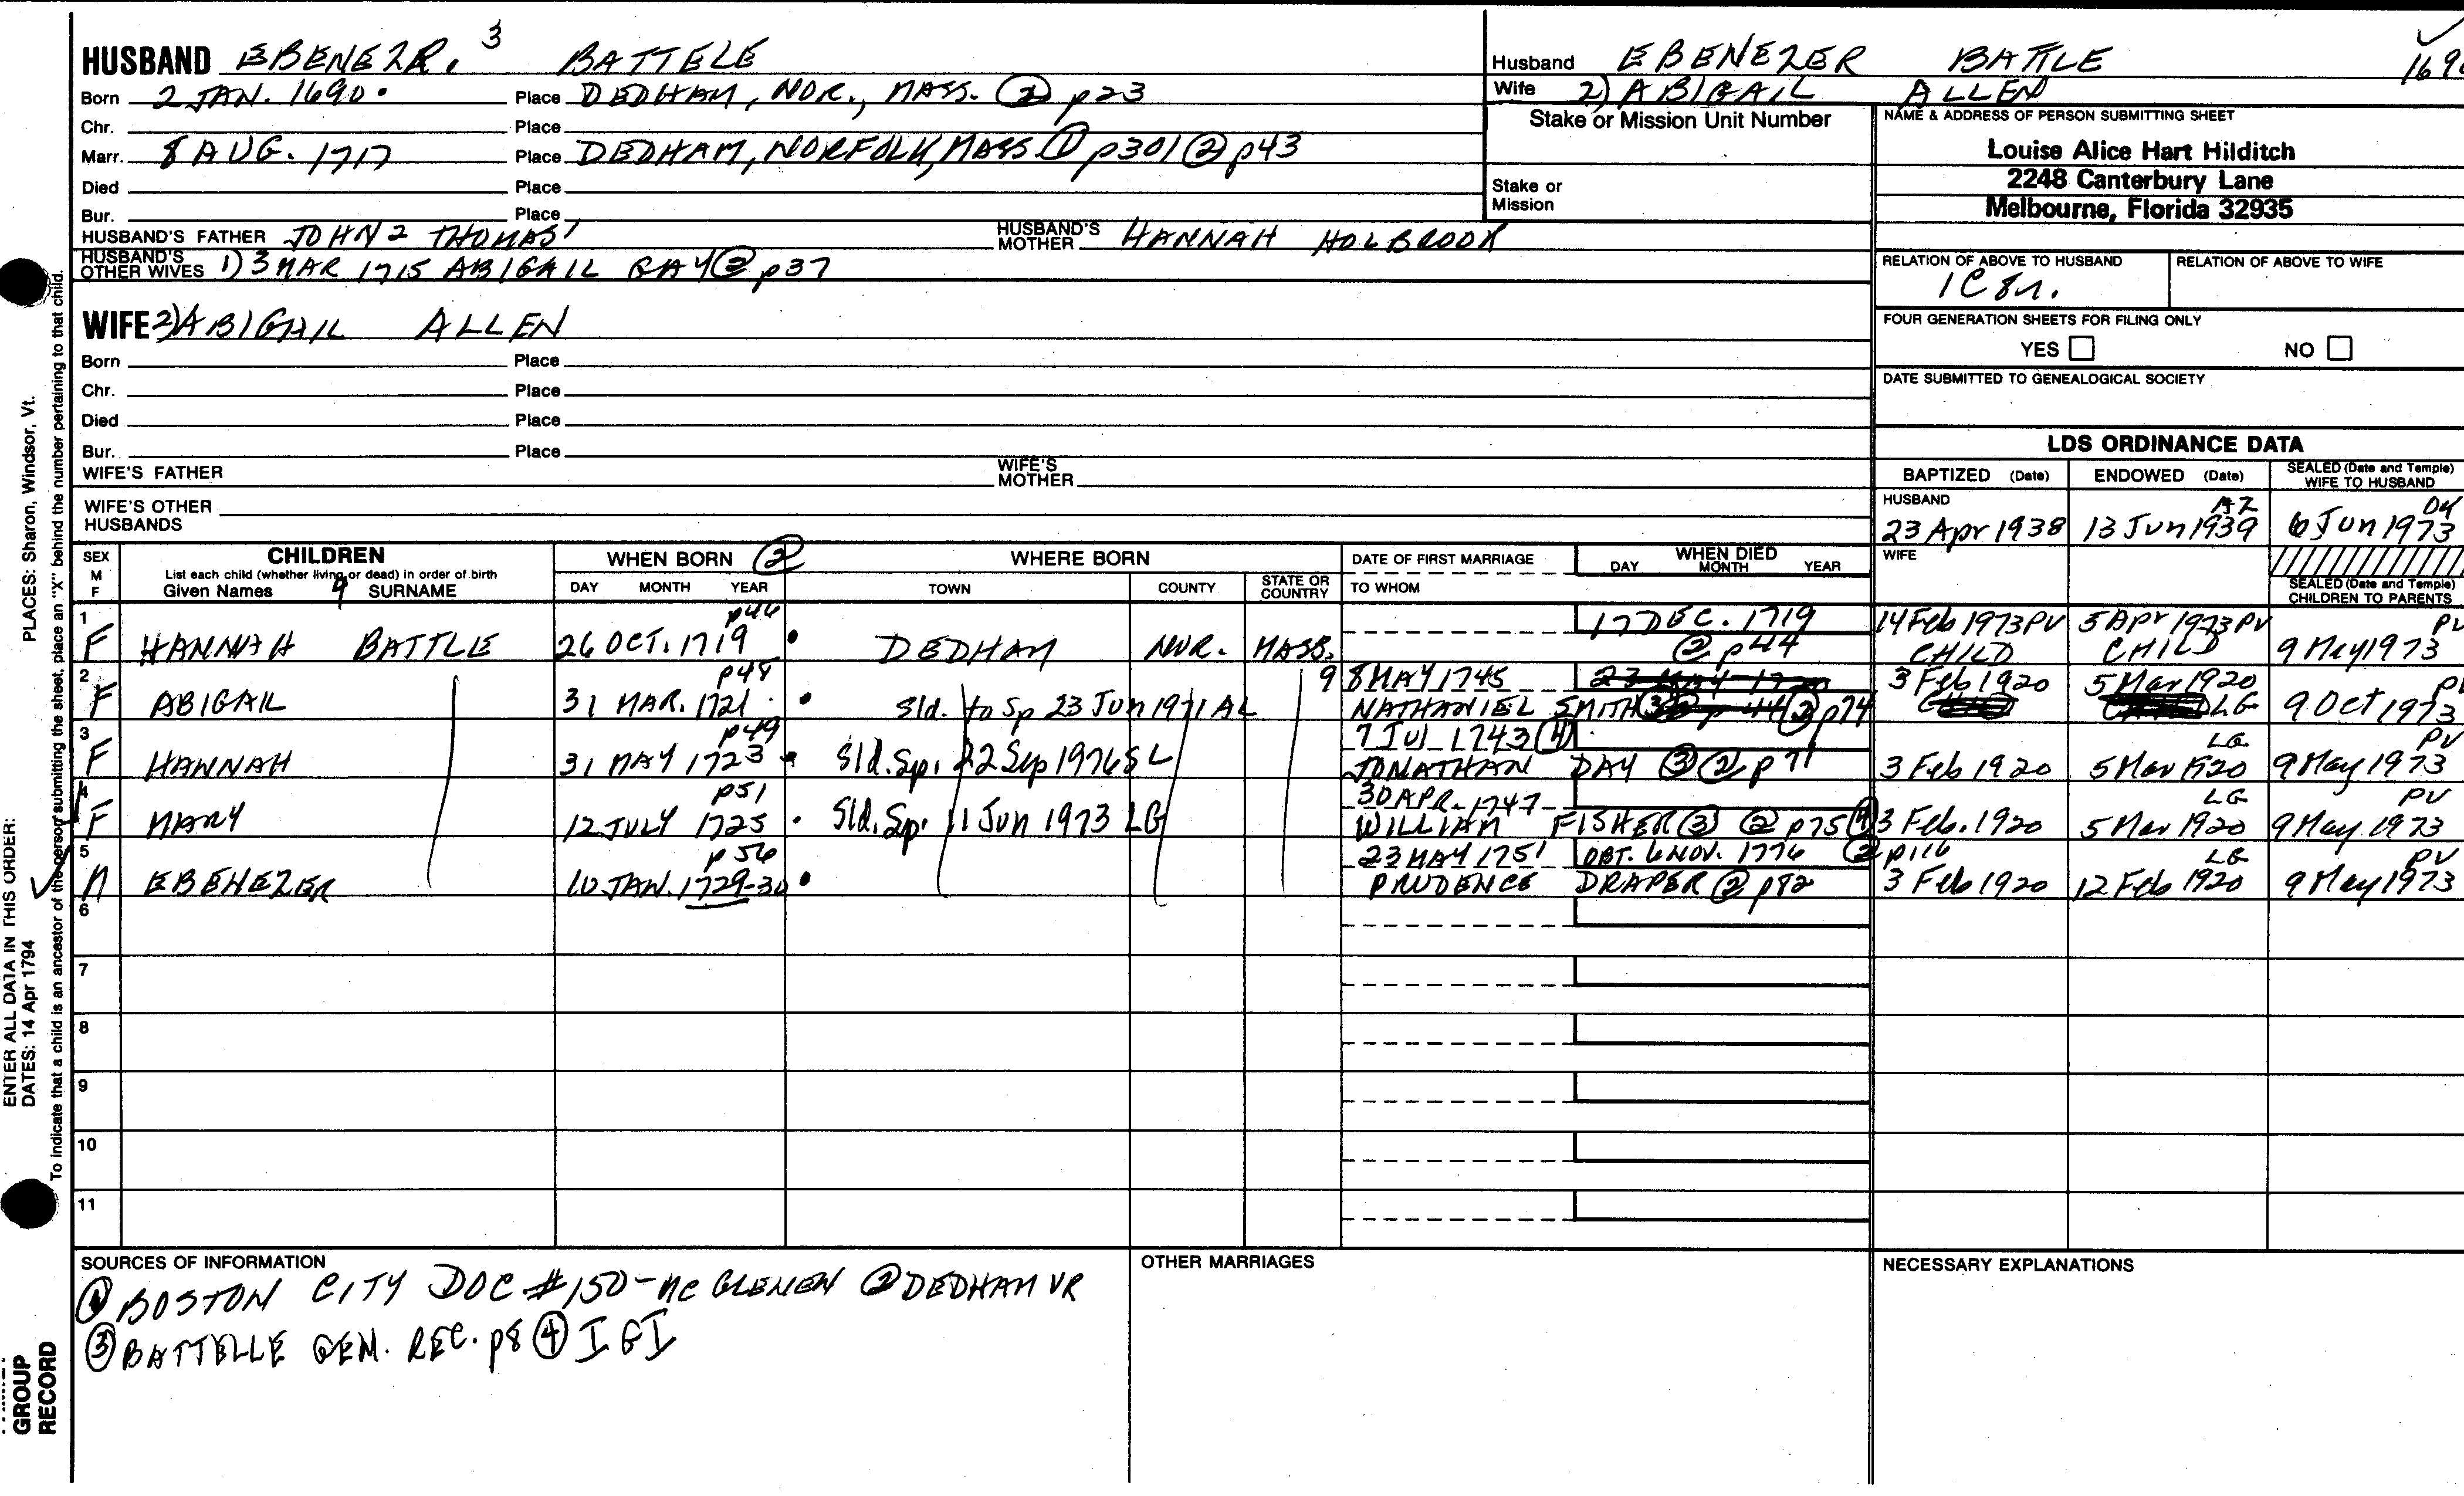 HUSBAND EBENEZR. 3 BATTELE
Born 2 JAN. 1690. Place DEDHAM, NOR., MASS. ② p23
Chr. Place
Marr. 8 AUG. 1717 Place DEDHAM, NORFOLK, MASS. ① p301 ② p43
Died Place
Bur. Place
HUSBAND'S FATHER JOHN 2 THOMAS1 HUSBAND'S MOTHER HANNAH HOLBROOK
HUSBAND'S OTHER WIVES 1) 3 MAR 1715 ABIGAIL GAY ② p37
WIFE 2) ABIGAIL ALLEN
Born Place
Chr. Place
Died Place
Bur. Place
WIFE'S FATHER WIFE'S MOTHER
WIFE'S OTHER HUSBANDS
Husband EBENEZER BATTLE
Wife 2) ABIGAIL ALLEN
Stake or Mission Unit Number
Stake or Mission
NAME & ADDRESS OF PERSON SUBMITTING SHEET
Louise Alice Hart Hilditch
2248 Canterbury Lane
Melbourne, Florida 32935
RELATION OF ABOVE TO HUSBAND RELATION OF ABOVE TO WIFE
1C 8r.
FOUR GENERATION SHEETS FOR FILING ONLY
YES NO
DATE SUBMITTED TO GENEALOGICAL SOCIETY
LDS ORDINANCE DATA
BAPTIZED (Date) ENDOWED (Date) SEALED (Date and Temple) WIFE TO HUSBAND
HUSBAND AZ
23 Apr 1938 13 Jun 1939 6 Jun 1973
WIFE
SEALED (Date and Temple) CHILDREN TO PARENTS
SEX M F CHILDREN WHEN BORN ② WHERE BORN DATE OF FIRST MARRIAGE WHEN DIED
List each child (whether living or dead) in order of birth
Given Names SURNAME DAY MONTH YEAR TOWN COUNTY STATE OR COUNTRY TO WHOM DAY MONTH YEAR
1 p46 17 DEC. 1719 14 Feb 1973 PV 5 Apr 1973 PV PV
F HANNAH BATTLE 26 OCT. 1719 DEDHAM NOR. MASS. ② p44 CHILD CHILD 9 May 1973
2 p48 8 MAY 1745 3 Feb 1920 5 Mar 1920 PV
F ABIGAIL 31 MAR. 1721 Sld. to Sp 23 Jun 1971 AL NATHANIEL SMITH ③ ② p74 LG 9 Oct 1973
3 p49 7 JUL 1743 ④ LG PV
F HANNAH 31 MAY 1723 Sld. Sp. 22 Sep 1976 SL JONATHAN DAY ③ ② p71 3 Feb 1920 5 Mar 1920 9 May 1973
4 p51 30 APR. 1747 LG PV
F MARY 12 JULY 1725 Sld. Sp. 11 Jun 1973 LG WILLIAM FISHER ③ ② p75 ④ 3 Feb. 1920 5 Mar 1920 9 May 1973
5 p56 23 MAY 1751 OBT. 6 NOV. 1776 ② p116 LG PV
M EBENEZER 10 JAN. 1729-30 PRUDENCE DRAPER ② p82 3 Feb 1920 12 Feb 1920 9 May 1973
6
7
8
9
10
11
SOURCES OF INFORMATION OTHER MARRIAGES NECESSARY EXPLANATIONS
① BOSTON CITY DOC #150-MC GLENEN ② DEDHAM VR
③ BATTELLE GEN. REC. p8 ④ IGI
PLACES: Sharon, Windsor, Vt.
ENTER ALL DATA IN THIS ORDER:
DATES: 14 Apr 1794
To indicate that a child is an ancestor of the person submitting the sheet, place an "X" behind the number pertaining to that child.
GROUP
RECORD